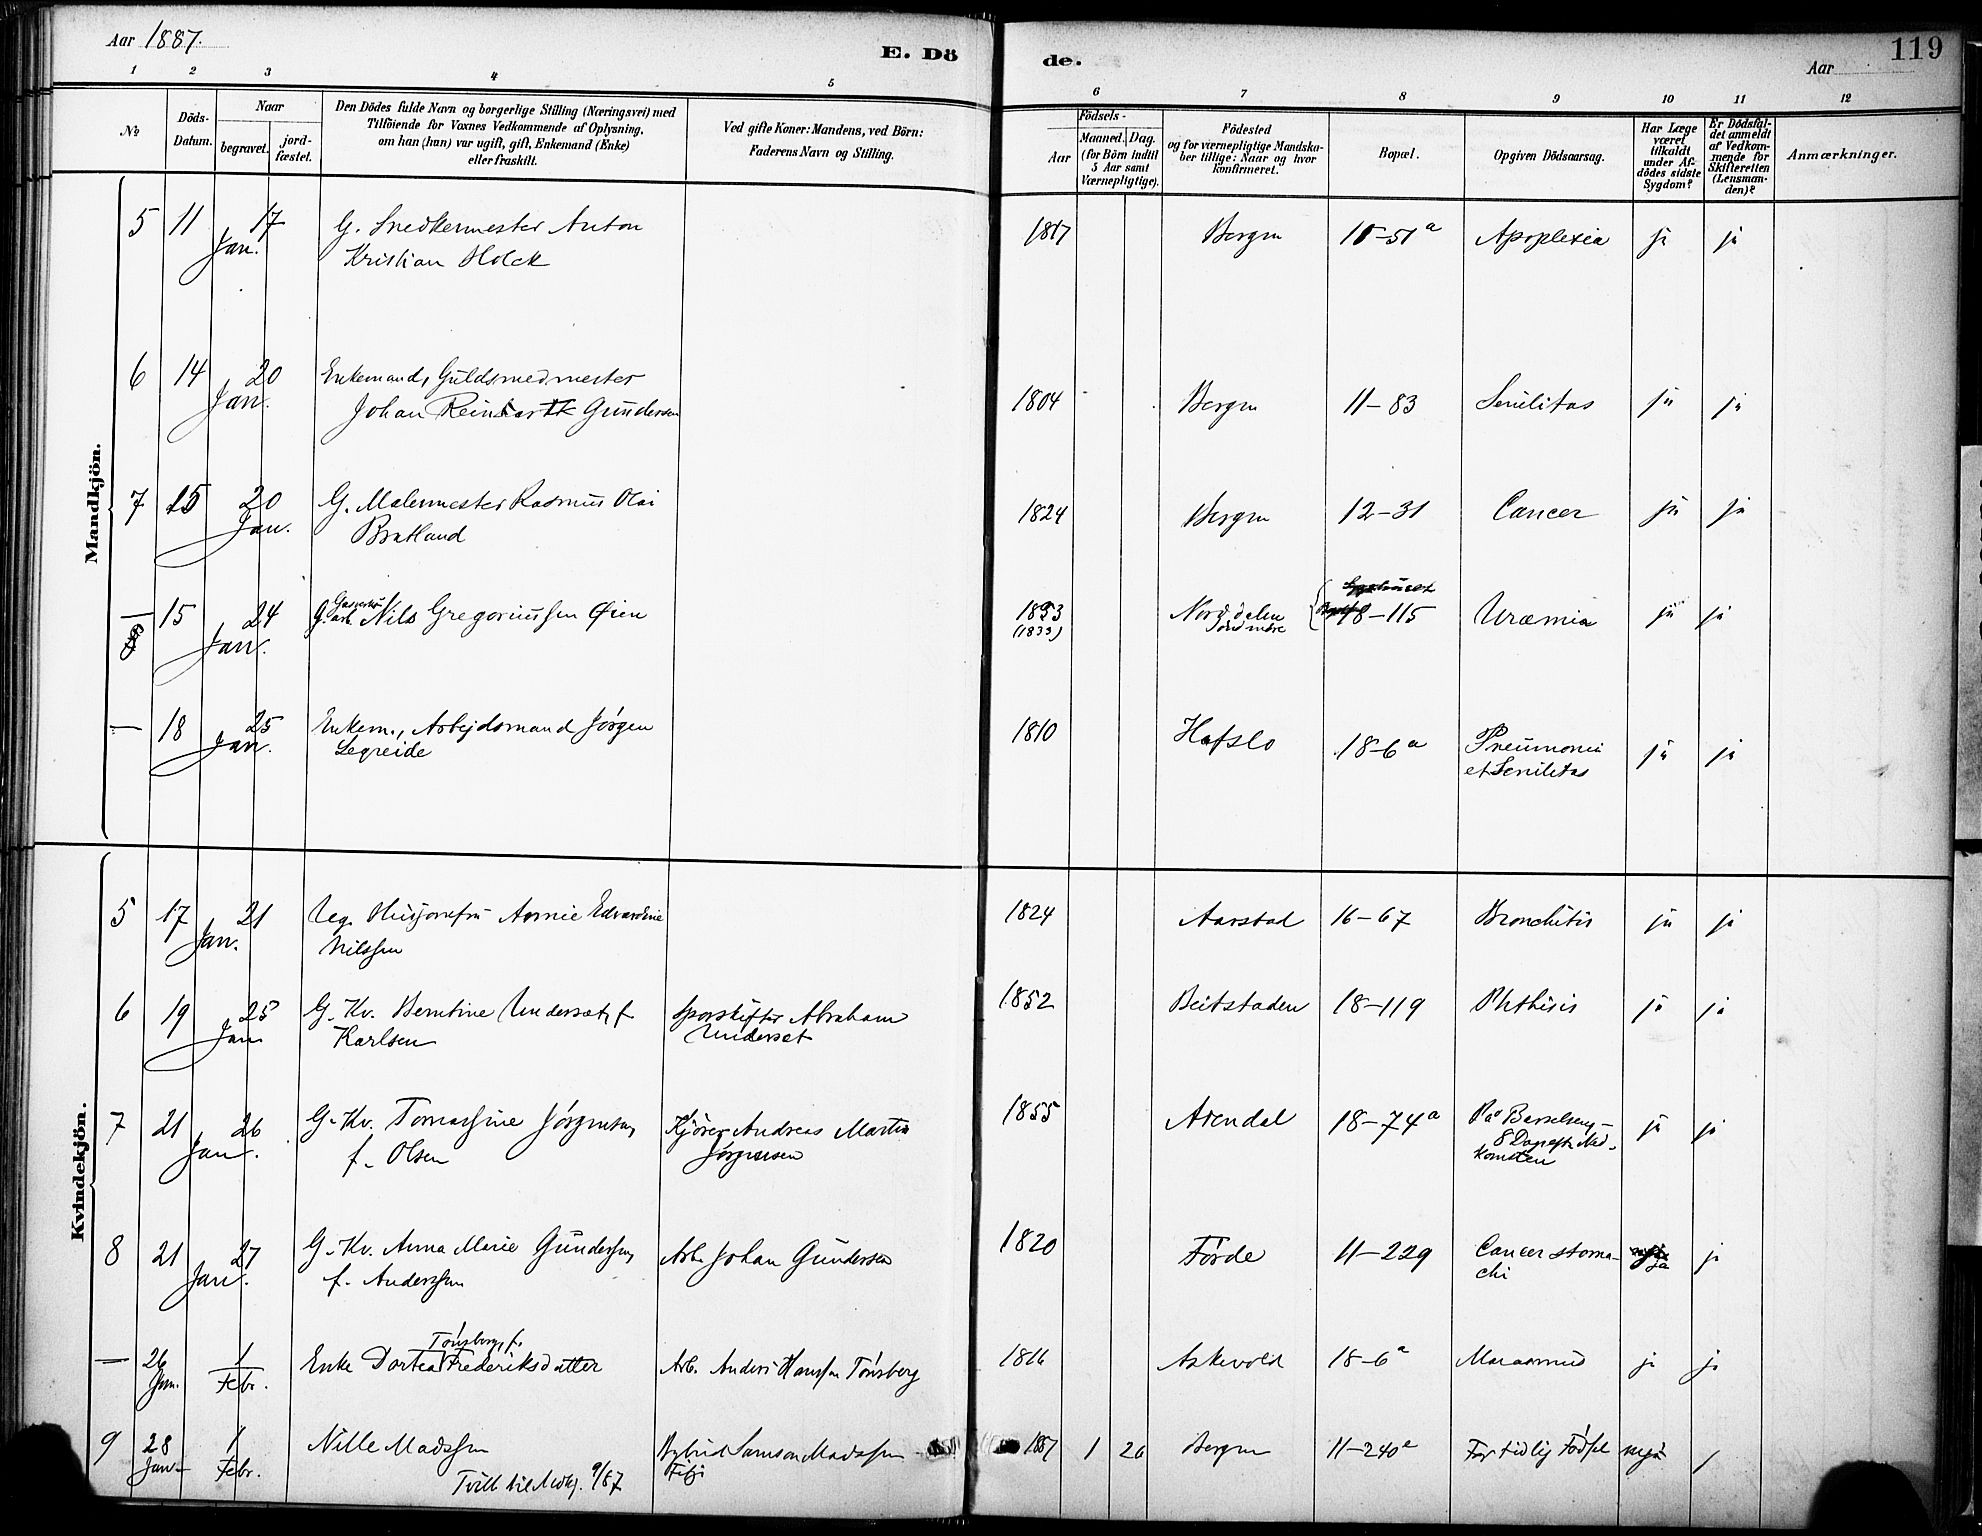 Aar 1887.
E. Dö
de.
Aar
119
1 2 3 4 5
6 7 8 9 10 11 12
No
Döds-
Datum.
Naar
begravet.
jord-
fæstet.
Den Dödes fulde Navn og borgerlige Stilling (Næringsvei) med
Tilföiende for Voxnes Vedkommende af Oplysning,
om han (hun) var ugift, gift, Enkemand (Enke)
eller fraskilt.
Ved gifte Koner: Mandens, ved Börn:
Faderens Navn og Stilling.
Födsels-
Aar
Maaned.
Dag.
(for Börn indtil
5 Aar samt
Værnepligtige).
Födested
og for værnepligtige Mandska-
ber tillige: Naar og hvor
konfirmeret.
Bopæl.
Opgiven Dödsaarsag.
Har Læge
været
tilkaldt
under Af-
dödes sidste
Sygdom?
Er Dödsfal-
det anmeldt
af Vedkom-
mende for
Skifteretten
(Lensman-
den)?
Anmærkninger.
Mandkjön.
5 11 17 G. Snedkermester Anton 1817 Bergen 11-51a Apoplexia ja ja
Jan. Kristian Holck
6 14 20 Enkemand, Guldsmedmester
Jan. Johan Reinhardt Gundersen 1804 Bergen 11-83 Senilitas ja ja
7 15 20 G. Malermester Rasmus Olai 1824 Bergen 12-31 Cancer ja ja
Jan. Bratland
— 15 24 G. arb. Nils Gregoriussen Øien 1833 Norddalen 18-115 Uræmia ja ja
Jan. (1833) Søndmøre
— 18 25 Enkem., Arbejdsmand Jørgen 1810 Hafslo 18-6a Pneumoni ja ja
Jan. Legreide et Senilitas
Kvindekjön.
5 17 21 Ug. Husjomfru Annie Edvardine 1824 Aarstad 16-67 Bronchitis ja ja
Jan. Nilssen
6 19 25 G. Kv. Berntine Underset, f. Sporskifter Abraham 1852 Beitstaden 18-119 Phthisis ja ja
Jan Karlsen Underset
7 21 26 G. Kv. Tomassine Jørgensen, Kjører Andreas Martin 1855 Arendal 18-74a Paa Barselseng - ja ja
Jan. f. Olsen Jørgensen 8 Dage eft. Ned-
komsten
8 21 27 G. Kv. Anna Marie Gundersen, Arb. Johan Gundersen 1820 Førde 11-229 Cancer stoma- ja ja
Jan. f. Anderssen chi
Tönsberg, f.
— 26 1 Enke Dortea Frederiksdatter Arb. Anders Hanssen Tönsberg 1816 Askevold 18-6a Marasmus ja ja
Jan. Febr.
9 28 1 Nille Madssen Samson Madssen 1887 1 26 Bergen 11-240a For tidlig Fødsel nej /
Jan. Febr. Tvill. til Mdkj. 9/87